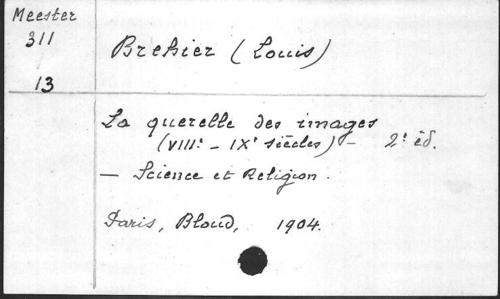 Meester
311
13
Brehier (Louis)
La querelle des images
(VIIIe - IXe siècles) - 2e éd.
- Science et Religion.
Paris, Bloud, 1904.